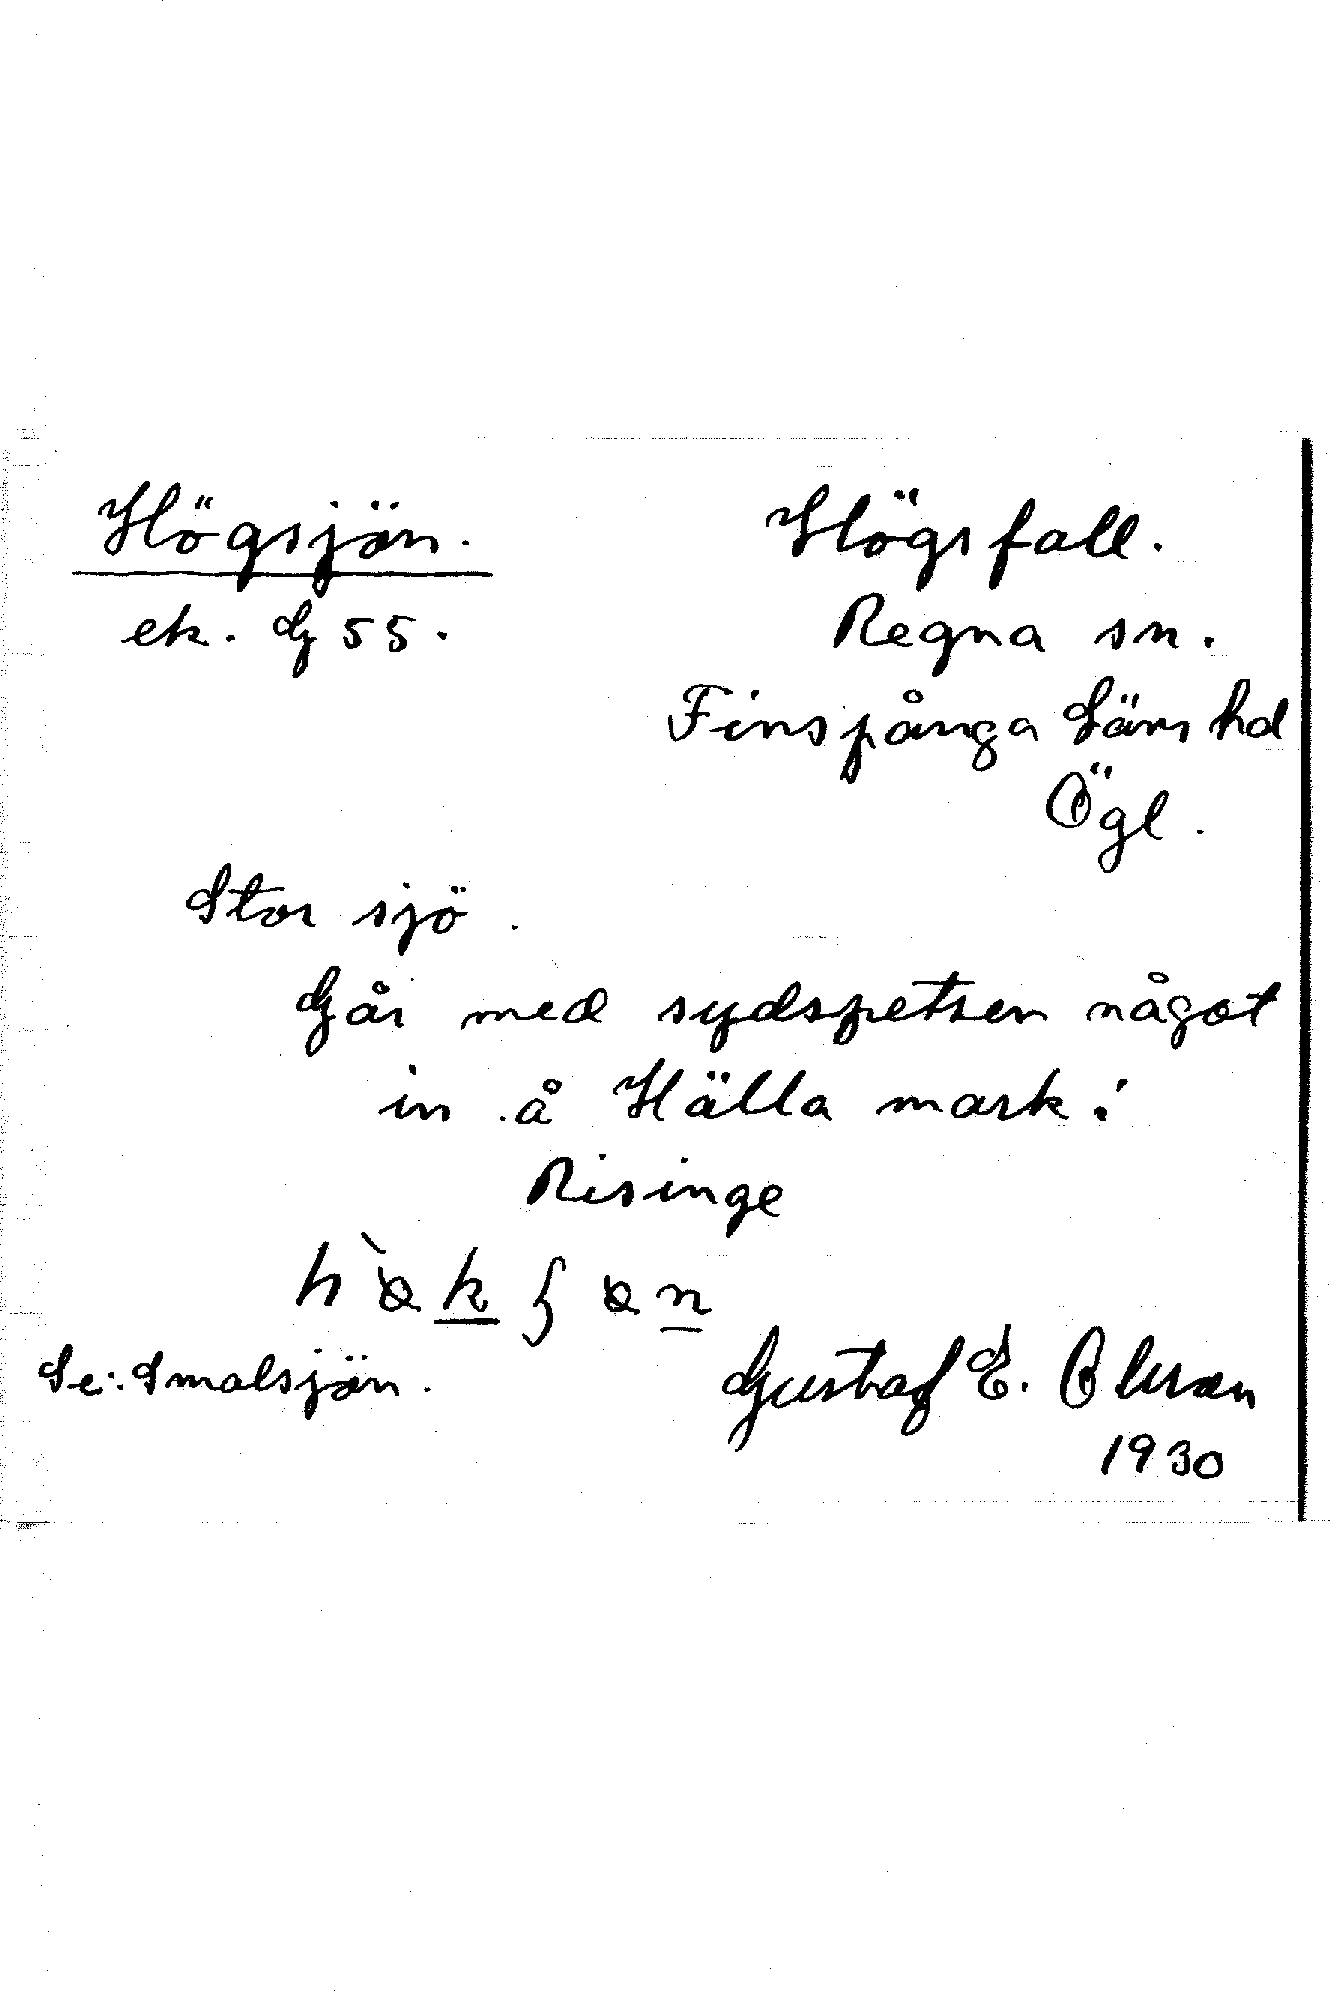 Högsjön.
ek. G 55.
Högsfall.
Regna sn.
Finspånga läns hd
Ögl.
Stor sjö.
Går med sydspetsen något
in å Hälla mark i
Risinge
Se: Smalsjön.
Gustaf E. Olsson
1930